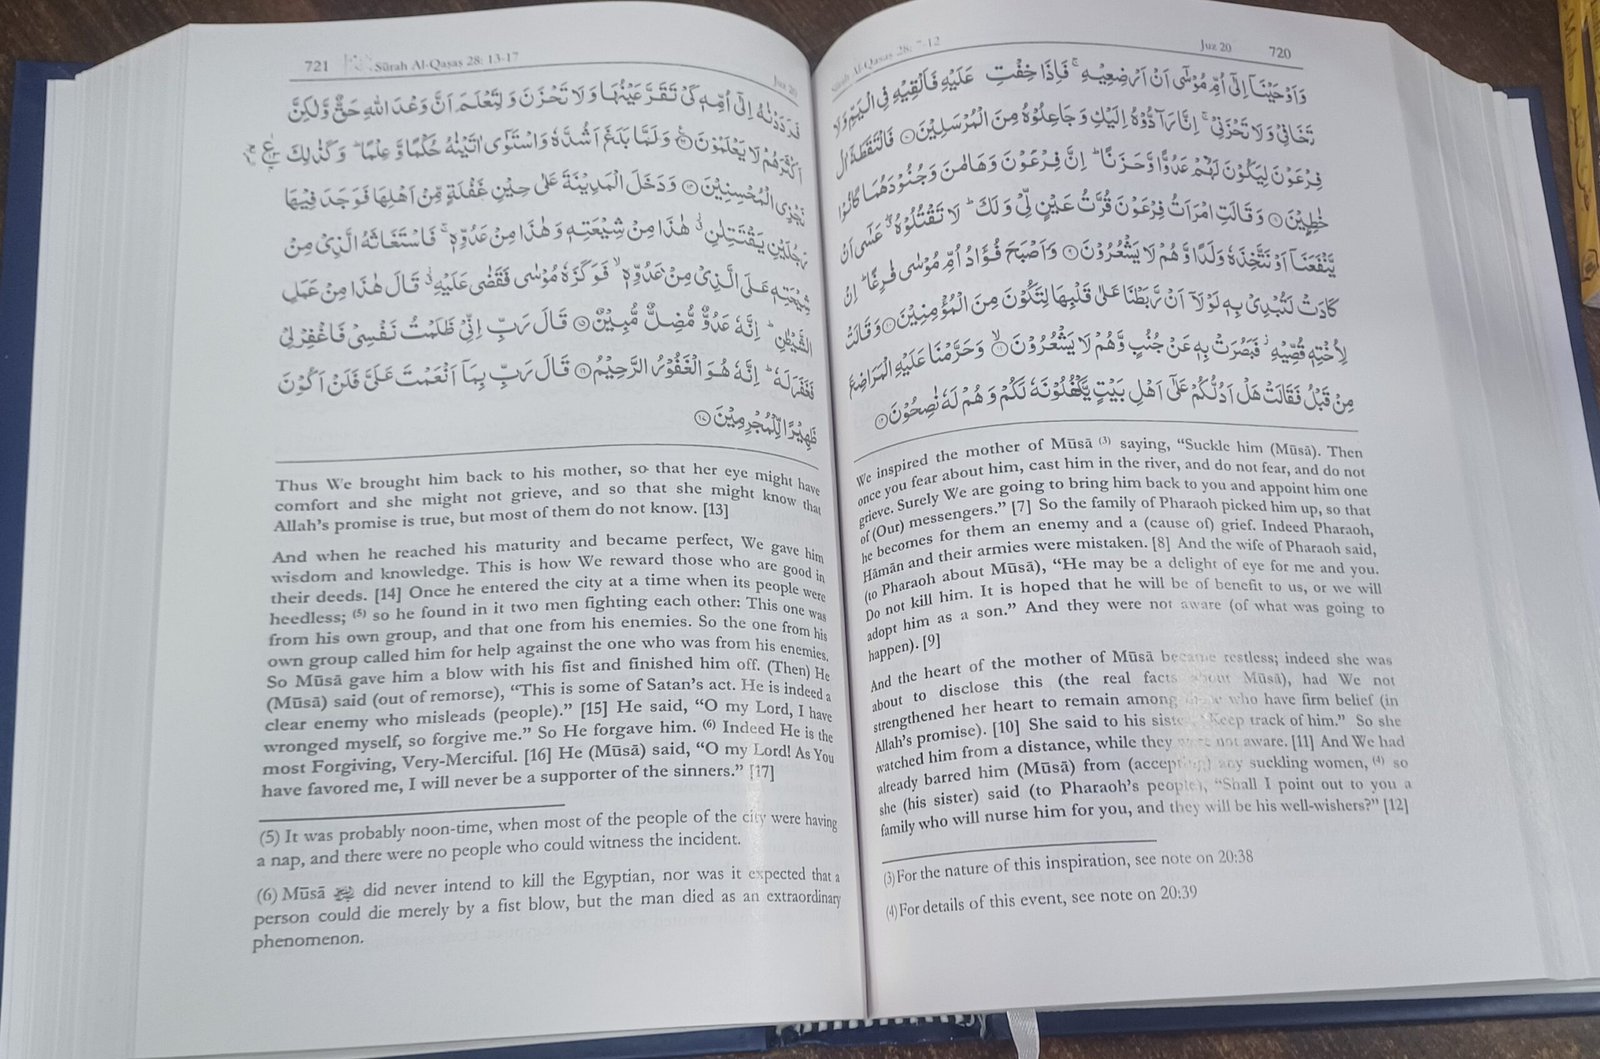 Sūrah Al-Qaṣaṣ 28: 7-12 Juz 20 720
وَاَوْحَيْنَاۤ اِلٰۤى اُمِّ مُوْسٰۤى اَنْ اَرْضِعِيْهِ ۚ فَاِذَا خِفْتِ عَلَيْهِ فَاَلْقِيْهِ فِى الْيَمِّ وَلَا
تَخَافِىْ وَلَا تَحْزَنِىْ ۚ اِنَّا رَآدُّوْهُ اِلَيْكِ وَجَاعِلُوْهُ مِنَ الْمُرْسَلِيْنَ ۝۷ فَالْتَقَطَهٗۤ اٰلُ
فِرْعَوْنَ لِيَكُوْنَ لَهُمْ عَدُوًّا وَّحَزَنًا ؕ اِنَّ فِرْعَوْنَ وَهَامٰنَ وَجُنُوْدَهُمَا كَانُوْا
خٰطِـِٕيْنَ ۝۸ وَقَالَتِ امْرَاَتُ فِرْعَوْنَ قُرَّتُ عَيْنٍ لِّىْ وَلَكَ ؕ لَا تَقْتُلُوْهُ ۖۗ عَسٰۤى اَنْ
يَّنْفَعَنَاۤ اَوْ نَتَّخِذَهٗ وَلَدًا وَّهُمْ لَا يَشْعُرُوْنَ ۝۹ وَاَصْبَحَ فُؤَادُ اُمِّ مُوْسٰى فٰرِغًا ؕ اِنْ
كَادَتْ لَتُبْدِىْ بِهٖ لَوْلَاۤ اَنْ رَّبَطْنَا عَلٰى قَلْبِهَا لِتَكُوْنَ مِنَ الْمُؤْمِنِيْنَ ۝۱۰ وَقَالَتْ
لِاُخْتِهٖ قُصِّيْهِ ۫ فَبَصُرَتْ بِهٖ عَنْ جُنُبٍ وَّهُمْ لَا يَشْعُرُوْنَ ۝۱۱ وَحَرَّمْنَا عَلَيْهِ الْمَرَاضِعَ
مِنْ قَبْلُ فَقَالَتْ هَلْ اَدُلُّكُمْ عَلٰۤى اَهْلِ بَيْتٍ يَّكْفُلُوْنَهٗ لَكُمْ وَهُمْ لَهٗ نٰصِحُوْنَ ۝۱۲
We inspired the mother of Mūsā (3) saying, “Suckle him (Mūsā). Then
once you fear about him, cast him in the river, and do not fear, and do not
grieve. Surely We are going to bring him back to you and appoint him one
of (Our) messengers.” [7] So the family of Pharaoh picked him up, so that
he becomes for them an enemy and a (cause of) grief. Indeed Pharaoh,
Hāmān and their armies were mistaken. [8] And the wife of Pharaoh said,
(to Pharaoh about Mūsā), “He may be a delight of eye for me and you.
Do not kill him. It is hoped that he will be of benefit to us, or we will
adopt him as a son.” And they were not aware (of what was going to
happen). [9]
And the heart of the mother of Mūsā became restless; indeed she was
about to disclose this (the real facts about Mūsā), had We not
strengthened her heart to remain among those who have firm belief (in
Allah’s promise). [10] She said to his sister, “Keep track of him.” So she
watched him from a distance, while they were not aware. [11] And We had
already barred him (Mūsā) from (accepting) any suckling women, (4) so
she (his sister) said (to Pharaoh’s people), “Shall I point out to you a
family who will nurse him for you, and they will be his well-wishers?” [12]
(3)For the nature of this inspiration, see note on 20:38
(4)For details of this event, see note on 20:39
721 Sūrah Al-Qaṣaṣ 28: 13-17 Juz 20
فَرَدَدْنٰهُ اِلٰۤى اُمِّهٖ كَىْ تَقَرَّ عَيْنُهَا وَلَا تَحْزَنَ وَلِتَعْلَمَ اَنَّ وَعْدَ اللّٰهِ حَقٌّ وَّلٰكِنَّ
اَكْثَرَهُمْ لَا يَعْلَمُوْنَ ۝۱۳ وَلَمَّا بَلَغَ اَشُدَّهٗ وَاسْتَوٰۤى اٰتَيْنٰهُ حُكْمًا وَّعِلْمًا ؕ وَكَذٰلِكَ
نَجْزِى الْمُحْسِنِيْنَ ۝۱۴ وَدَخَلَ الْمَدِيْنَةَ عَلٰى حِيْنِ غَفْلَةٍ مِّنْ اَهْلِهَا فَوَجَدَ فِيْهَا
رَجُلَيْنِ يَقْتَتِلٰنِ ۫ هٰذَا مِنْ شِيْعَتِهٖ وَهٰذَا مِنْ عَدُوِّهٖ ۚ فَاسْتَغَاثَهُ الَّذِىْ مِنْ
شِيْعَتِهٖ عَلَى الَّذِىْ مِنْ عَدُوِّهٖ ۙ فَوَكَزَهٗ مُوْسٰى فَقَضٰى عَلَيْهِ ۫ قَالَ هٰذَا مِنْ عَمَلِ
الشَّيْطٰنِ ؕ اِنَّهٗ عَدُوٌّ مُّضِلٌّ مُّبِيْنٌ ۝۱۵ قَالَ رَبِّ اِنِّىْ ظَلَمْتُ نَفْسِىْ فَاغْفِرْ لِىْ
فَغَفَرَ لَهٗ ؕ اِنَّهٗ هُوَ الْغَفُوْرُ الرَّحِيْمُ ۝۱۶ قَالَ رَبِّ بِمَاۤ اَنْعَمْتَ عَلَىَّ فَلَنْ اَكُوْنَ
ظَهِيْرًا لِّلْمُجْرِمِيْنَ ۝۱۷
Thus We brought him back to his mother, so that her eye might have
comfort and she might not grieve, and so that she might know that
Allah’s promise is true, but most of them do not know. [13]
And when he reached his maturity and became perfect, We gave him
wisdom and knowledge. This is how We reward those who are good in
their deeds. [14] Once he entered the city at a time when its people were
heedless; (5) so he found in it two men fighting each other: This one was
from his own group, and that one from his enemies. So the one from his
own group called him for help against the one who was from his enemies.
So Mūsā gave him a blow with his fist and finished him off. (Then) He
(Mūsā) said (out of remorse), “This is some of Satan’s act. He is indeed a
clear enemy who misleads (people).” [15] He said, “O my Lord, I have
wronged myself, so forgive me.” So He forgave him. (6) Indeed He is the
most Forgiving, Very-Merciful. [16] He (Mūsā) said, “O my Lord! As You
have favored me, I will never be a supporter of the sinners.” [17]
(5) It was probably noon-time, when most of the people of the city were having
a nap, and there were no people who could witness the incident.
(6) Mūsā did never intend to kill the Egyptian, nor was it expected that a
person could die merely by a fist blow, but the man died as an extraordinary
phenomenon.